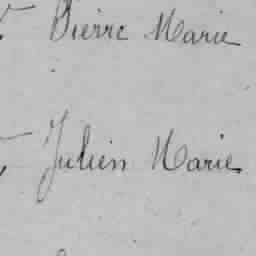 Pierre Marie
Julien Marie